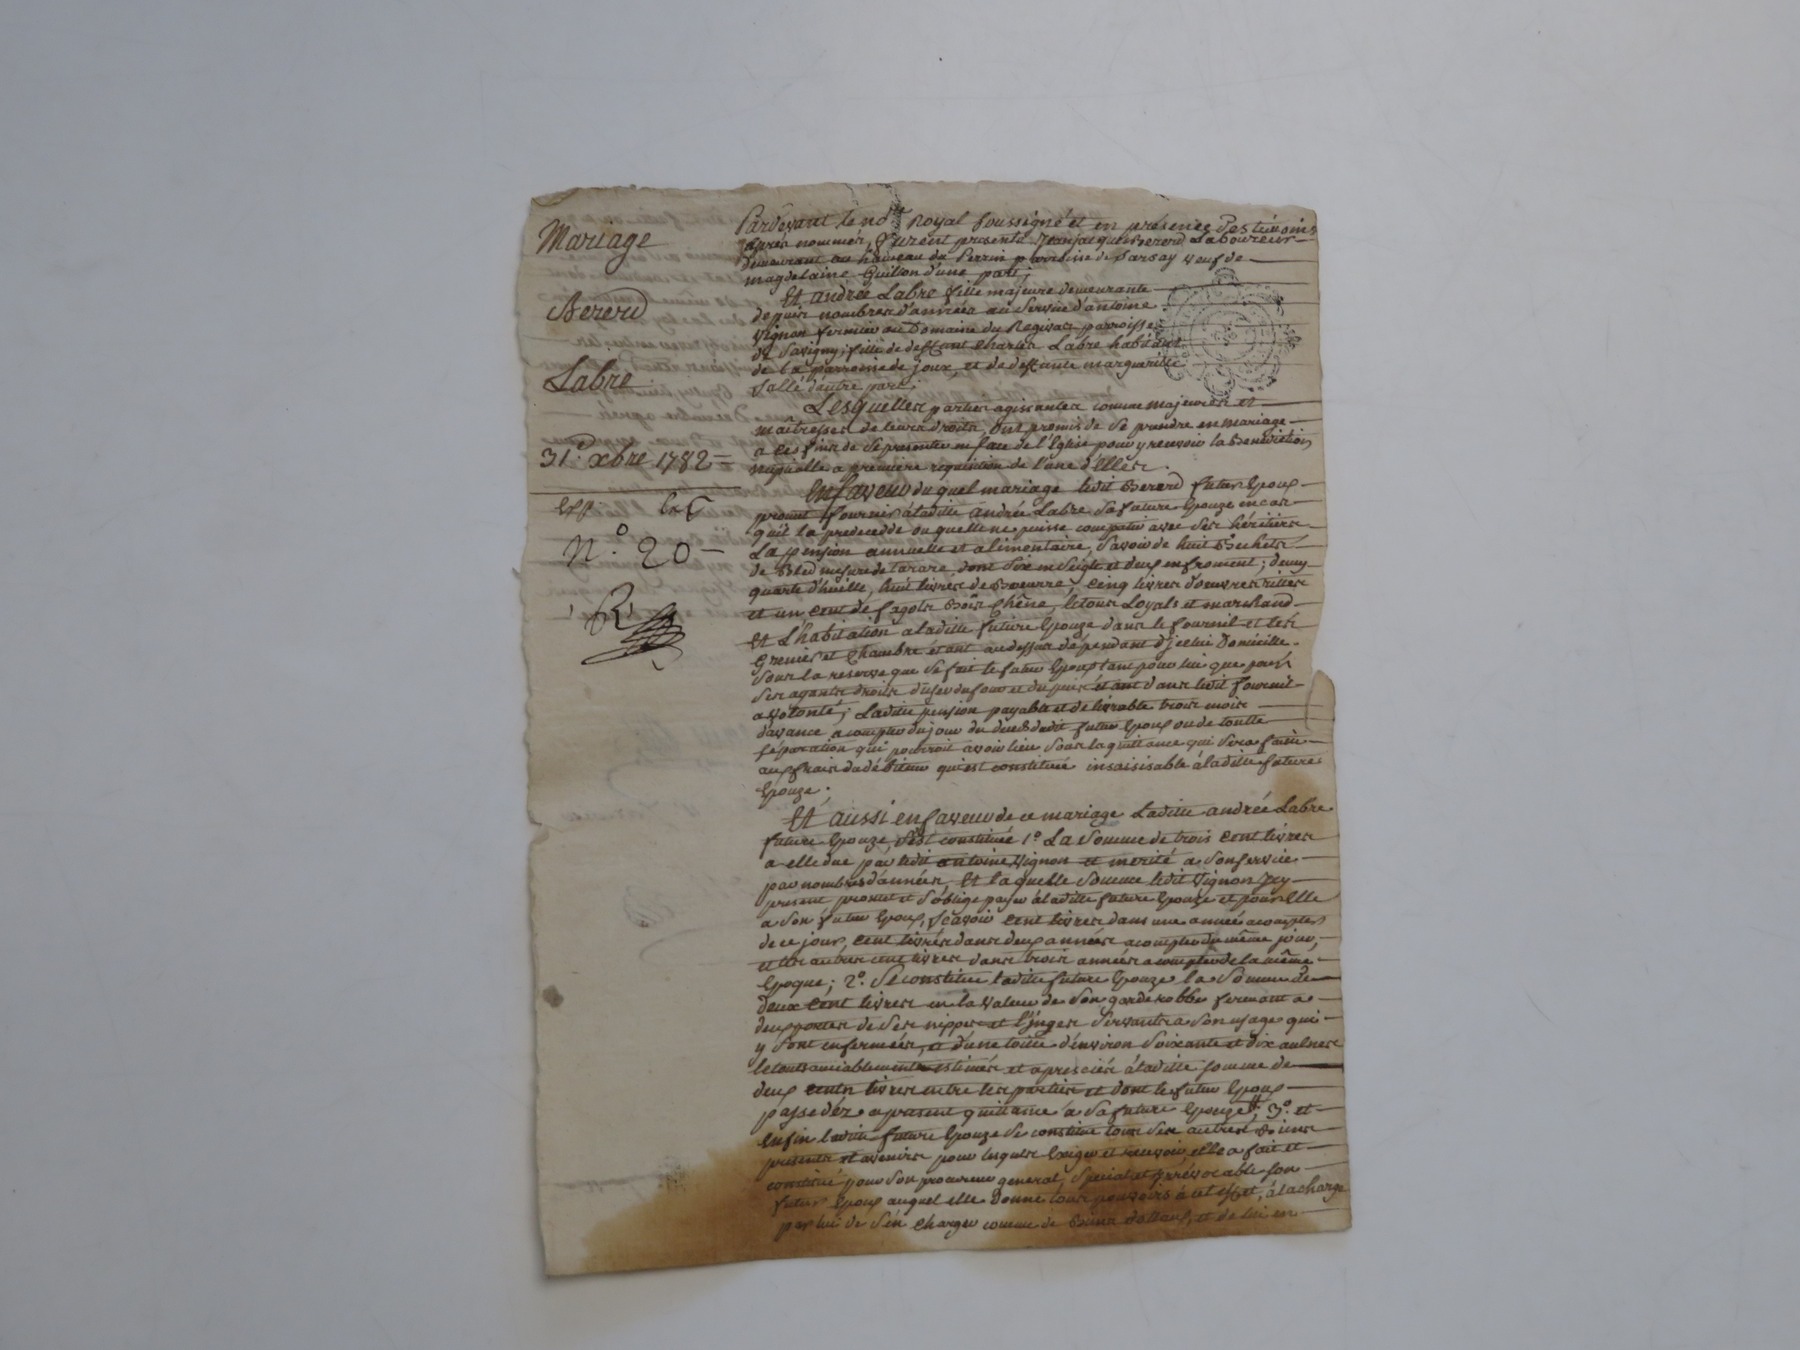 Mariage
Bererd
Labre
31e. xbre 1782
Exp.
N.° 20
R
Pardevant le no.re Royal soussigné et en présence des témoins
après nommés, furent présents Jean jacques Bererd Laboureur
demeurant au hameau du Perrin parroisse de Darsay veuf de
magdelaine Guillon d'une part;
Et andrée Labre fille majeure demeurante
depuis nombres d'années au service d'antoine
vignon fermier au Domaine du parroisse
de Savigny, fille de deffunt Charles Labre habitant
de la parroisse de joux, et de deffunte marguerite
Sallé d'autre part;
Lesquelles parties agissantes comme majeures et
maitresses de leurs droits, ont promis de se prendre en mariage
a ces fins de se présenter en face de l'Eglise pour y recevoir la Benediction
nuptialle a première réquisition de l'une d'Elles.
En faveur du quel mariage ledit Bererd futur Epoux
promet fournir à ladite andrée Labre sa future Epouze en cas
qu'il la predecedde ou quelle ne puisse compatir avec ses héritiers
La pension annuelle et alimentaire, savoir de huit Bichets
de Bled mesure de tarare, dont six en seigle et deux en froment; demy
quarte d'huille, huit livres de Boeurre, cinq livres d'oeuvres rittes
et un cent de fagots Bois Chêne, le tout Loyals et marchand
Et L'habitation a ladite future Epouze dans le fournil et les
Greniers et Chambre étant audessus dépendant d'jcelui Domicille.
Sous la reserve que se fait le futur Epoux tant pour lui que pour
ses ayants droits d'user du four et du puis étant dans ledit fournil
a volonté; Ladite pension payable et délivrable trois mois
d'avance a compter du jour du decés dudit futur Epoux ou de toutte
séparation qui pourroit avoir lieu sous la quittance qui sera faite
aux frais du débiteur qui est constituée insaisisable à ladite future
Epouze.
Et aussi en faveur de ce mariage Ladite andrée Labre
future Epouze, s'est constituée 1.° La somme de trois cent livres
a elle due par ledit antoine vignon et mérité a son service
par nombres d'années, Et laquelle somme ledit vignon jcy
present promet et s'oblige payer à ladite future Epouze et pour Elle
a son futur Epoux, sçavoir cent livres dans une année a compter
de ce jour, cent livres dans deux années a compter du même jour,
et les autres cent livres dans trois années a compter de la même
Epoque; 2.° Se constitue ladite future Epouze la somme de
deux cent livres en la valeur de son garderobbe fermant a
deux portes de ses nippes et linges servants a son usage qui
y sont enfermées, et d'une toille d'environ soixante et dix aulnes
le tout amiablement estimés et apreciés à ladite somme de
deux cents livres entre les parties et dont le futur Epoux
passe dès a present quittance à sa future Epouze; 3.° et
Enfin ladite future Epouze se constitue tous ses autres Biens
présents et avenirs pour lesquels Exiger et recevoir, elle a fait et
constitué pour son procureur général, spécial et jrrévocable son
futur Epoux auquel elle donne tous pouvoirs à cet effet, à la charge
par lui de s'en charger comme de Biens dottaux, et de lui en